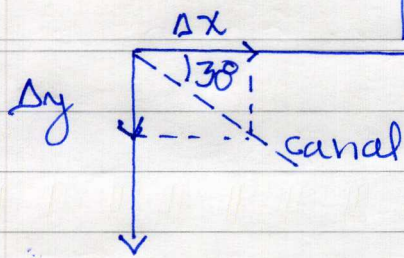 Δx
38°
Δy
canal